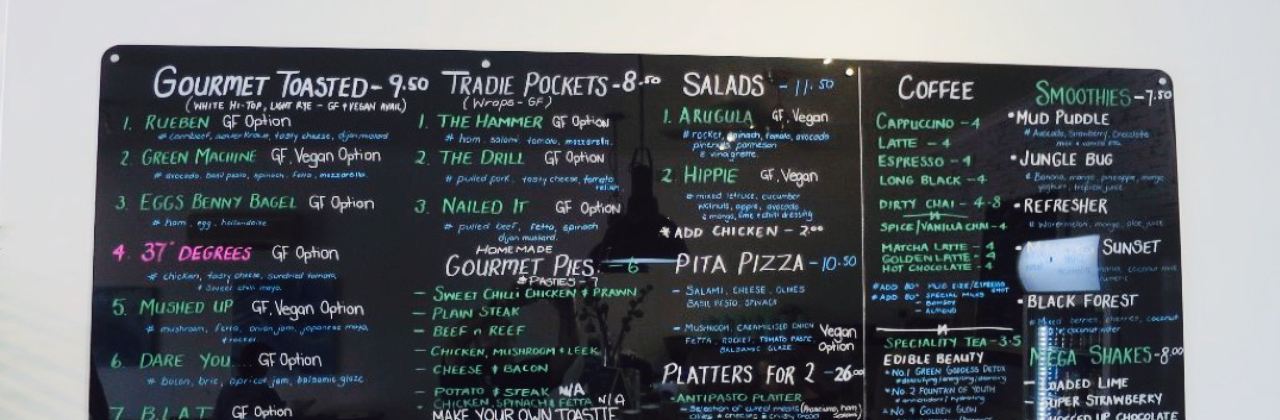 GOURMET TOASTED - 9.50
(WHITE HI-TOP, LIGHT RYE - GF + VEGAN AVAIL)
1. RUEBEN GF Option
# cornbeef, sauerkraus, tasty cheese, dijon mustard
2. GREEN MACHINE GF, Vegan Option
# avocado, basil pesto, spinach, fetta, mozzarella
3. EGGS BENNY BAGEL GF Option
# ham, egg, hollandaise
4. 37° DEGREES GF Option
# chicken, tasty cheese, sundried tomato,
+ sweet chilli mayo
5. MUSHED UP GF, Vegan Option
# mushroom, fetta, onion jam, japanese mayo,
+ rocket
6. DARE YOU... GF Option
# bacon, brie, apricot jam, balsamic glaze
7. B.L.A.T GF Option
TRADIE POCKETS - 8.50
(Wraps - GF)
1. THE HAMMER GF Option
# ham, salami, tomato, mozzarella
2. THE DRILL GF Option
# pulled pork, tasty cheese, tomato
relish
3. NAILED IT GF Option
# pulled beef, fetta, spinach
dijon mustard
HOMEMADE
GOURMET PIES - 6
# PASTIES - 7
- SWEET CHILLI CHICKEN & PRAWN
- PLAIN STEAK
- BEEF n REEF
- CHICKEN, MUSHROOM & LEEK
- CHEESE & BACON
- POTATO & STEAK N/A
- CHICKEN, SPINACH & FETTA N/A
MAKE YOUR OWN TOASTIE
SALADS - 11.50
1. ARUGULA GF, Vegan
# rocket, spinach, tomato, avocado
pinenuts, parmesan
& vinaigrette
2. HIPPIE GF, Vegan
# mixed lettuce, cucumber
walnuts, apple, avocado
& mango, lime + chilli dressing
* ADD CHICKEN - 2.00
PITA PIZZA - 10.50
- SALAMI, CHEESE, OLIVES
BASIL PESTO, SPINACH
- MUSHROOM, CARAMELISED ONION
FETTA, ROCKET, TOMATO PASTE
BALSAMIC GLAZE
Vegan
Option
PLATTERS FOR 2 - 26.00
- ANTIPASTO PLATTER
- Selection of cured meats (Prosciutto, ham)
COFFEE
CAPPUCCINO - 4
LATTE - 4
ESPRESSO - 4
LONG BLACK - 4
DIRTY CHAI - 4.8
SPICE/VANILLA CHAI - 4
MATCHA LATTE - 4
GOLDEN LATTE - 4
HOT CHOCOLATE - 4
# ADD 80¢ MUG SIZE/ESPRESSO
SHOT
# ADD 80¢ SPECIAL MILKS
- BONSOY
- ALMOND
SPECIALITY TEA - 3.5
EDIBLE BEAUTY
* No.1 GREEN GODDESS DETOX
* No 2 FOUNTAIN OF YOUTH
* No 4 GOLDEN GLOW
SMOOTHIES - 7.50
• MUD PUDDLE
# Avocado, Strawberry, Chocolate
• JUNGLE BUG
# Banana, mango, pineapple, mango
yoghurt, tropical juice
• REFRESHER
# Watermelon, mango, aloe, juice
SUNSET
• BLACK FOREST
# Mixed berries, cherries, coconut
coconut water
MEGA SHAKES - 8.00
- LOADED LIME
- SUPER STRAWBERRY
CHOCOLATE